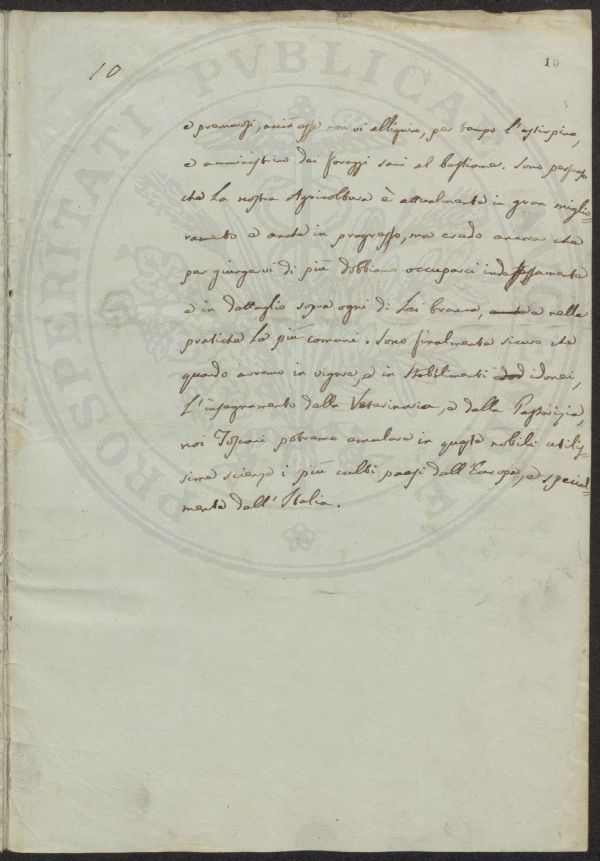 10
10
PROSPERITATI PVBLICAE
e premurosi, acciò esse non vi allignino, per tempo l'estirpino,
e amministrino dai foraggi sani al bestiame. Sono persuaso
che la nostra Agricoltura è attualmente in gran miglio=
ramento e anche in progresso, ma credo ancora che
per giungervi di più dobbiamo occuparci indefessamente
e in dettaglio sopra ogni di Lei branca, e nelle
pratiche le più comuni. Sono finalmente sicuro che
quando avremo in vigore, e in Stabilimenti idonei,
l'insegnamento della Veterinaria, e della Pastorizia,
noi Toscani potremo emulare in queste nobili utilis=
sime scienze i più culti paesi dell'Europa, e special=
mente dell'Italia.